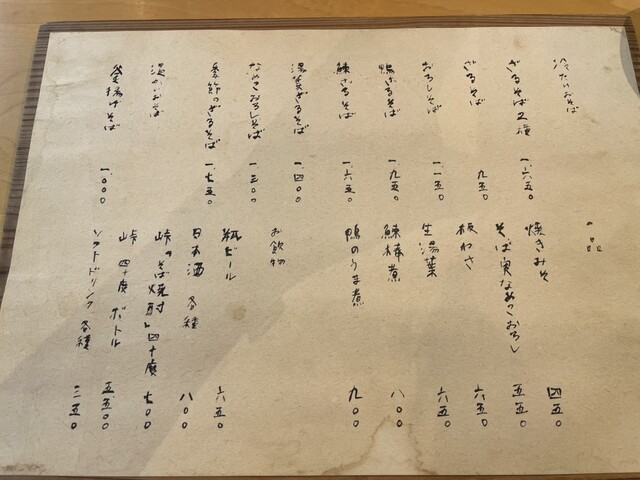 冷たいおそば
ざるそば2種 一.六五〇
ざるそば 九五〇
おろしそば 一.一五〇
鴨ざるそば 一.九五〇
鰊ざるそば 一.六五〇
湯葉ざるそば 一.四〇〇
なめこおろしそば 一.三〇〇
季節のざるそば 一.七五〇
温かいおそば
釜揚げそば 一.〇〇〇
一品
焼きみそ 四五〇
そば実なめこおろし 五五〇
板わさ 六五〇
生湯葉 六五〇
鰊棒煮 八〇〇
鴨のうま煮 九〇〇
お飲物
瓶ビール 六五〇
日本酒 各種 八〇〇
峠のそば焼酎 四十度 七〇〇
峠 四十度 ボトル 五五〇〇
ソフトドリンク 各種 三五〇